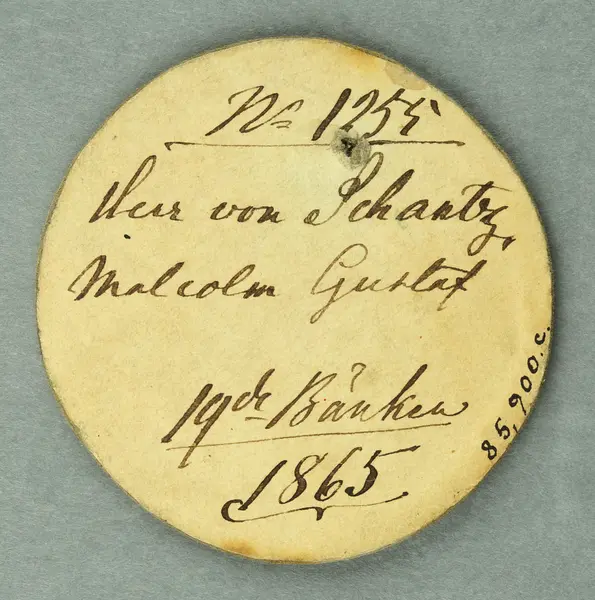 No 1255
Herr von Schantz,
Malcolm Gustaf
19de Bänken
1865
85,900.c.